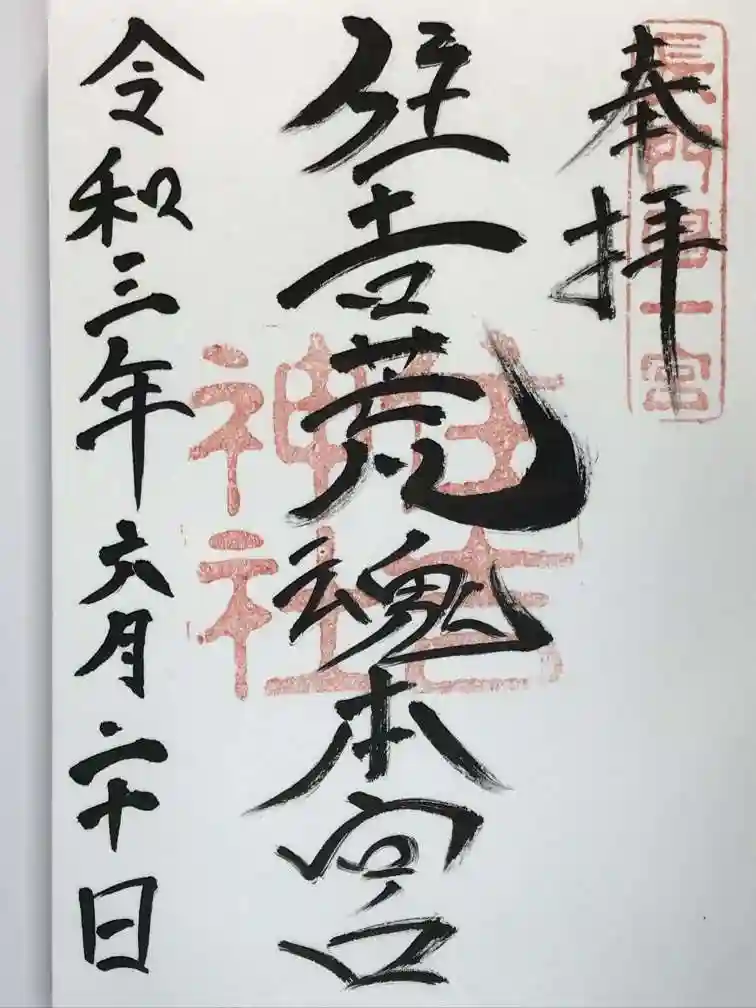 奉拝
長門國一宮
住吉荒魂本宮
住吉
神社
令和三年六月二十日